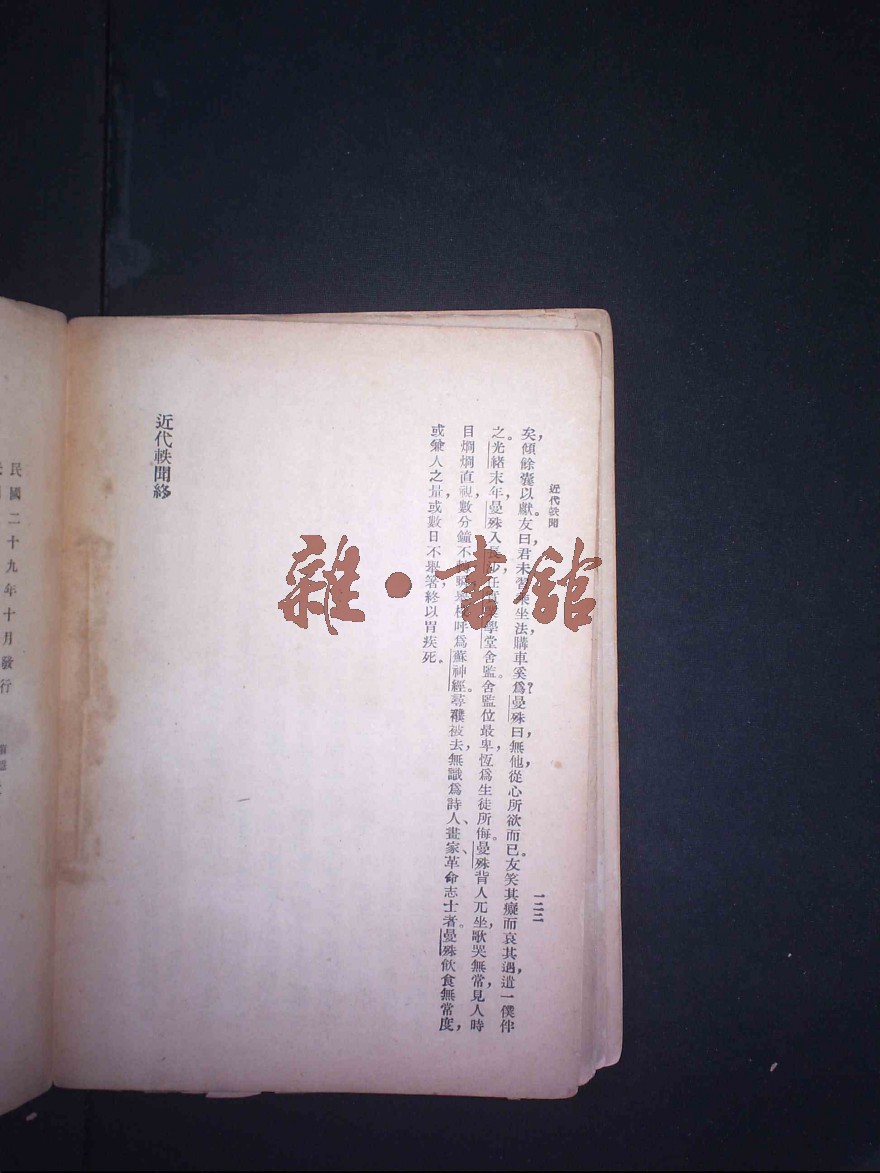 近代軼聞
一二二
矣，傾餘囊以獻。友曰，君未習乘坐法，購車奚爲？曼殊曰，無他，從心所欲而已。友笑其癡而哀其遇，遣一僕伴
之。光緒末年，曼殊入長沙任實業學堂舍監。舍監位最卑，恆爲生徒所侮。曼殊背人兀坐，歌哭無常，見人時
目烱烱直視，數分鐘不呼爲蘇神經。尋襆被去，無識爲詩人、畫家、革命志士者。曼殊飲食無常度，
或兼人之量，或數日不舉箸，終以胃疾死。
近代軼聞終
民國二十九年十月發行
雜·書館